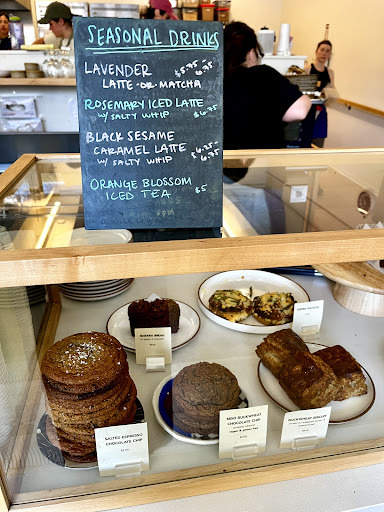 SEASONAL DRINKS
LAVENDER $5.75 - 6.75
LATTE -OR- MATCHA
ROSEMARY ICED LATTE
W/ SALTY WHIP $6.75
BLACK SESAME
CARAMEL LATTE $6.25 -
W/ SALTY WHIP 6.75
ORANGE BLOSSOM
ICED TEA $5
BANANA BREAD
SALTED ESPRESSO
CHOCOLATE CHIP
MINI BUCKWHEAT
CHOCOLATE CHIP
BUCKWHEAT BISCUIT